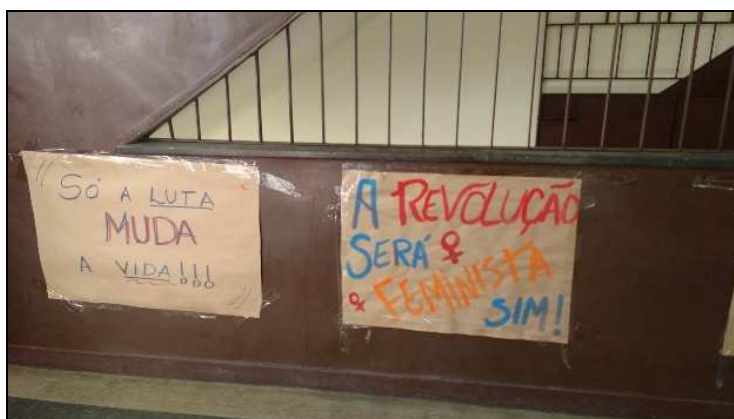 " SÓ A LUTA
MUDA
A VIDA!!! "
A REVOLUÇÃO
SERÁ ♀
♀ FEMINISTA
SIM!